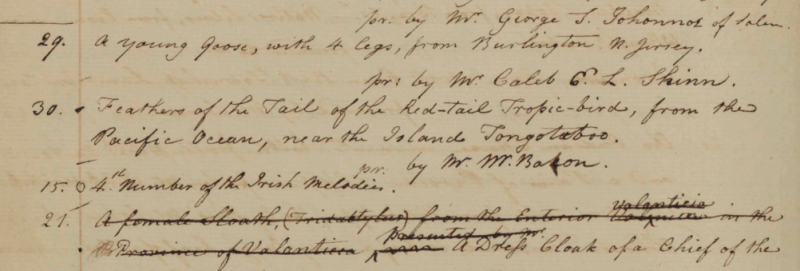 pr. by Mr. George S. Johonnot of Salem.
29. A young Goose, with 4 legs, from Burlington N. Jersey.
pr: by Mr. Caleb L. Skinn.
30. Feathers of the Tail of the Red-tail Tropic-bird, from the
Pacific Ocean, near the Island Tongotaboo.
pr. by Mr. Wm. Bacon.
15. 4th Number of the Irish Melodies.
21. A female Sloath, (Tridactylus) from the Interior Valanticia in the
Province of Valanticia presented by Mr. A Dress Cloak of a Chief of the